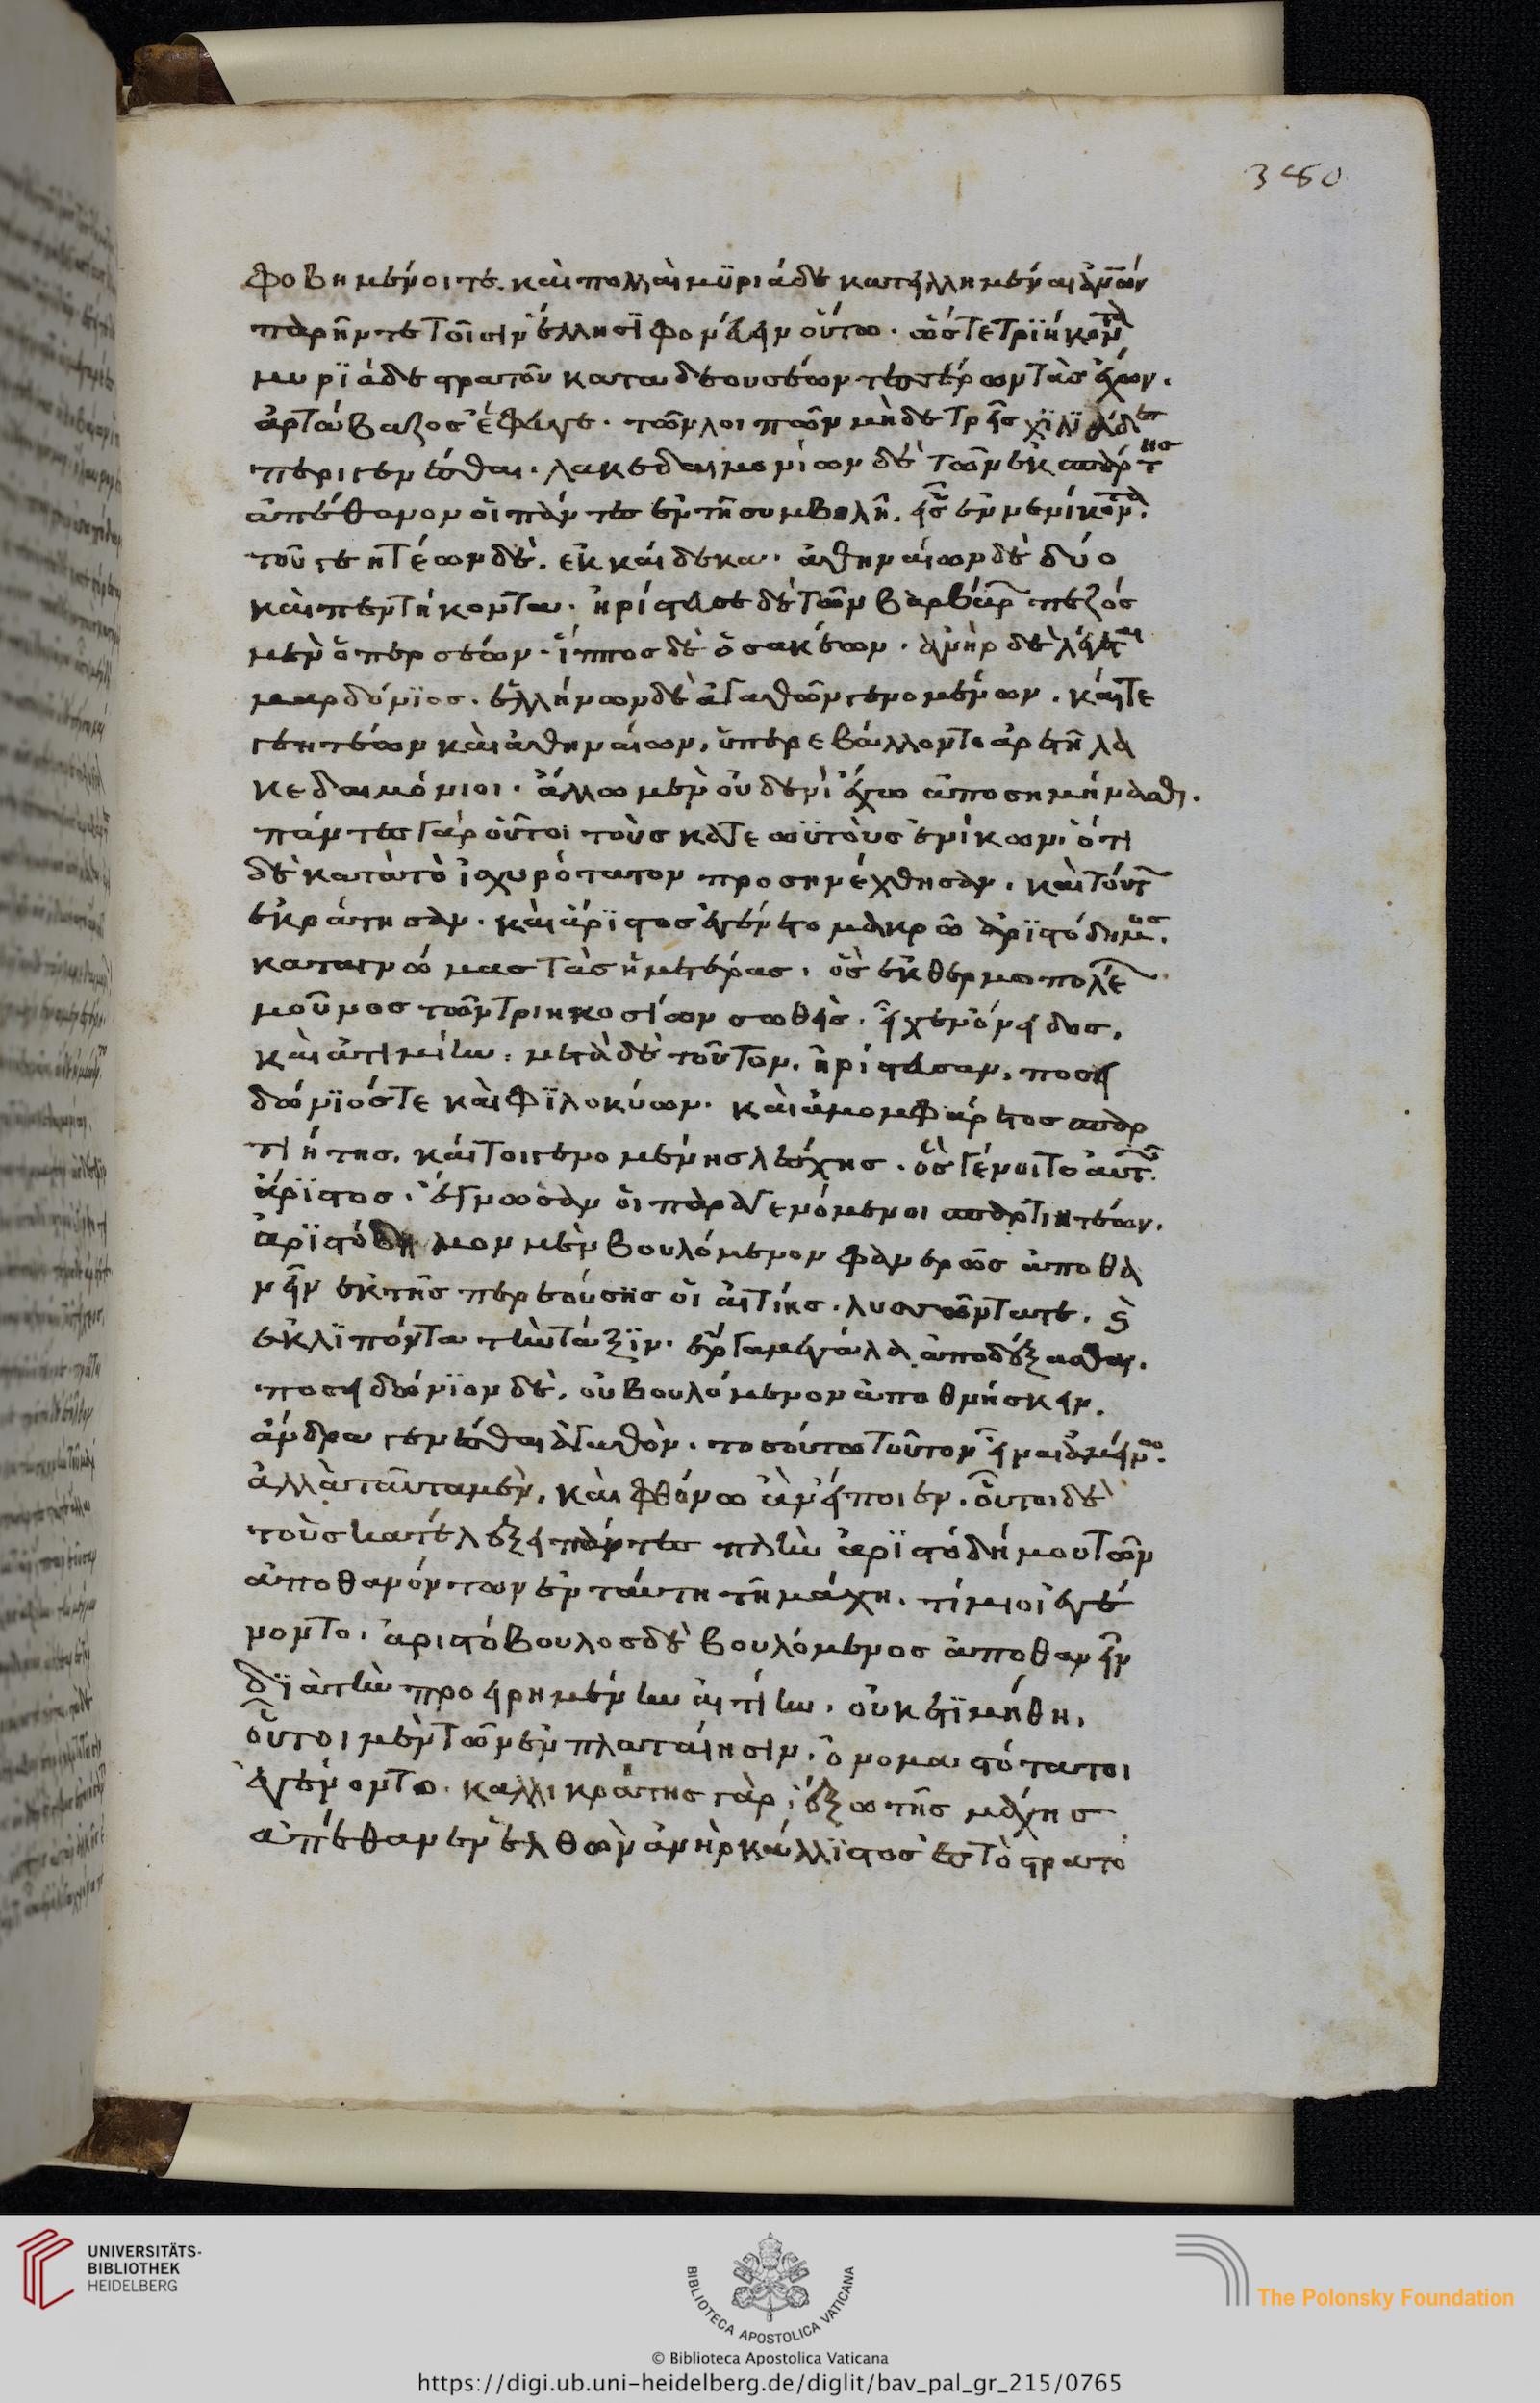 380
φοβημένοι τε. καὶ πολλαὶ μϋριάδε κατειλημέναι ἀνῶν
παρῆν τε τοῖσιν ἕλλησϊ φονέυειν οὕτω. ὥστε τρϊήκοντα
μυρϊάδε στρατοῦ καταδεουσέων τεσσέρων τὰς ἔχων.
ἀρτάβαζος ἔφευγε. τῶν λοιπῶν μὴδὲ τρεῖς χϊλϊάδες
περιγενέσθαι. λακεδαιμονίων δὲ τῶν ἐκ σπάρτης
ἀπέθανον οἱ πάντες ἐν τῆ συμβολῆ. εἷς ἐννενίκοντα.
τουγεητέων δὲ. ἐκκαίδεκα. ἀθηναίων δὲ δύο
καὶ πεντήκοντα. ἠρίστευσε δὲ τῶν βαρβάρ πεζὸς
μὲν ὁ περσέων. ἵππος δὲ ὁ σακέων. ἀνὴρ δὲ λέγεται
μαρδόνϊος. ἑλλήνων δὲ ἀγαθῶν γενομένων. καί τε
γεητέων καὶ ἀθηναίων, ὑπερεβάλλοντο ἀρετῆ λα
κεδαιμόνιοι. ἄλλω μὲν οὐδενὶ ἔχω ἀποσημήνασθαι.
πάντες γὰρ οὗτοι τοὺς κατεωϋτοὺς ἐνίκων. ὅτι
δὲ κατὰ τὸ ἰσχυρότατον προσηνέχθησαν. καὶ τούτ
ἐκράτησαν. καὶ ἄρϊστος ἐγένετο μακρῶ ἀρϊστόδημος.
κατὰ γνώμας τὰς ἡμετέρας. ὃς ἐκ θερμοπολέ
μοῦνος τῶν τριηκοσίων σωθεὶς. εἶχεν ὄνειδος,
καὶ ἀτιμίην: μετὰ δὲ τοῦτον. ἠρίστευσαν, ποσει
δώνϊός τε καὶ φϊλοκύων. καὶ ἀμομφάρετος σπαρ
τιήτης. καίτοι γενομένης λέσχης. ὃς γένοιτο αὐτῶν
ἄρϊστος. ἔγνωσαν οἱ παραγενόμενοι σπαρτιητέων.
ἀρϊστόδημον μὲν βουλόμενον φανερῶς ἀποθα
νεῖν ἐκ τῆς περεούσης οἱ αἰτίης. λυσσῶντα τε. καὶ
ἐκλϊπόντα τὴν τάξϊν. ἔργα μεγάλα ἀποδέξασθαι.
ποσειδώνϊον δὲ. οὐ βουλόμενον ἀποθνήσκειν.
ἄνδρα γενέσθαι ἀγαθὸν. τοσούτω τοῦτον εἶναι ἀμείνω.
ἀλλὰ ταῦτα μὲν, καὶ φθόνω ἂν εἴποιεν. οὗτοι δὲ
τοὺς κατέλεξα πάντες πλὴν ἀρϊστόδήμου τῶν
ἀποθανόντων ἐν ταύτη τῆ μάχη. τίμιοι ἐγέ
νοντο. ἀριστόβουλος δὲ βουλόμενος ἀποθανεῖν
δϊὰ τὴν προειρημένην αἰτίην. οὐκ ἐτϊμήθη.
οὗτοι μὲν τῶν ἐν πλαταίησιν. ὀνομαστότατοι
ἐγένοντο. καλλικράτης γὰρ. ἔξω τῆς μάχης
ἀπέθανεν ἐλθὼν ἀνὴρ κάλλϊστος ἐς τὸ στρατό
UNIVERSITÄTS-
BIBLIOTHEK
HEIDELBERG
BIBLIOTECA APOSTOLICA VATICANA
The Polonsky Foundation
© Biblioteca Apostolica Vaticana
https://digi.ub.uni-heidelberg.de/diglit/bav_pal_gr_215/0765